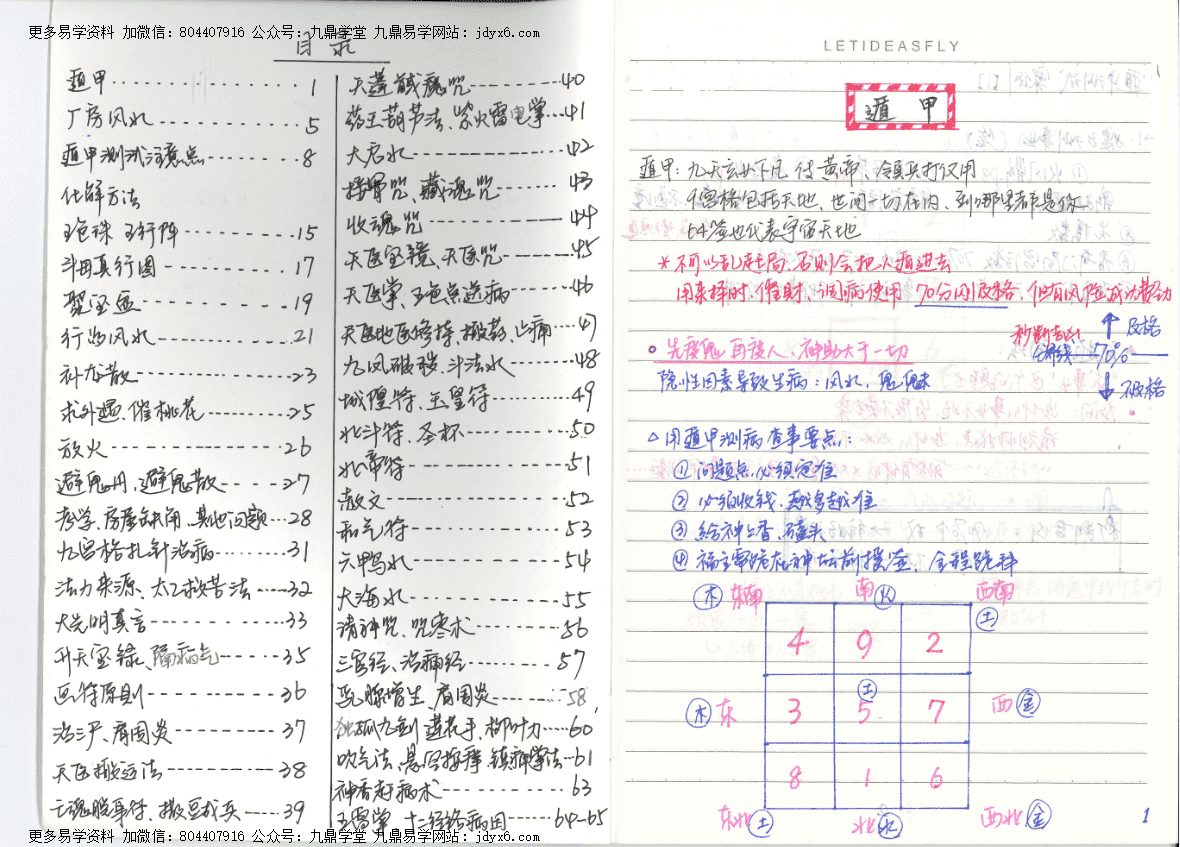 更多易学资料 加微信：804407916 公众号：九鼎学堂 九鼎易学网站：jdyx6.com
目录
遁甲 1
厂房风水 5
遁甲测试注意点 8
化解方法
五色珠 五行阵 15
斗母真行图 17
聚宝盆 19
行治风水 21
补龙散 23
求外遇、催桃花 25
放火 26
避鬼丹、避鬼散 27
考学、房屋缺角、其他问题 28
九宫格扎针治病 31
法力来源、太乙救苦法 32
大光明真言 33
升天宝箓、隔病气 35
画符原则 36
治三尸、肩周炎 37
天医搬运法 38
亡魂脱身符、撒豆成兵 39
天蓬馘魔咒 40
药王葫芦法、紫火雷电掌 41
大启水 42
接骨咒、藏魂咒 43
收魂咒 44
天医宝箓、天医咒 45
天医掌、五色点送病 46
天医地医修持、搬药、止痛 47
九凤破秽、斗法水 48
城隍符、玉皇符 49
北斗符、圣杯 50
北帝符 51
散文 52
和气符 53
六鸭水 54
大海水 55
请神咒、咒枣术 56
三官经、治痛经 57
乳腺增生、肩周炎 58
独孤九剑 莲花手、柳叶刀 60
吹气法、悬空按摩、镇神掌法 61
神香赶病术 63
五雷掌、十二经络病因 64-65
LETIDEASFLY
遁 甲
遁甲：九天玄女下凡 传黄帝、令员兵打仗用
九宫格包括天地、世间一切在内、到哪里都是你
64签也代表宇宙天地
*不可以乱起局、否则会把人遁进去
用来择时、催财、调病使用 70分刚及格、但有风险成功费劲
分界线 70%
及格
不及格
先度鬼 再度人、神助大于一切
隐性因素导致生病：风水、鬼魅
△用遁甲测病查事要点：
① 问题点、必须定准
② 必须收钱、越多越准
③ 给神上香、磕头
④ 福主需跪在神坛前摸签、全程跪拜
木 东南 南 火 西南 土
4 9 2
木 东 3 土 5 7 西 金
8 1 6
东北 土 北 水 西北 金
1
更多易学资料 加微信：804407916 公众号：九鼎学堂 九鼎易学网站：jdyx6.com